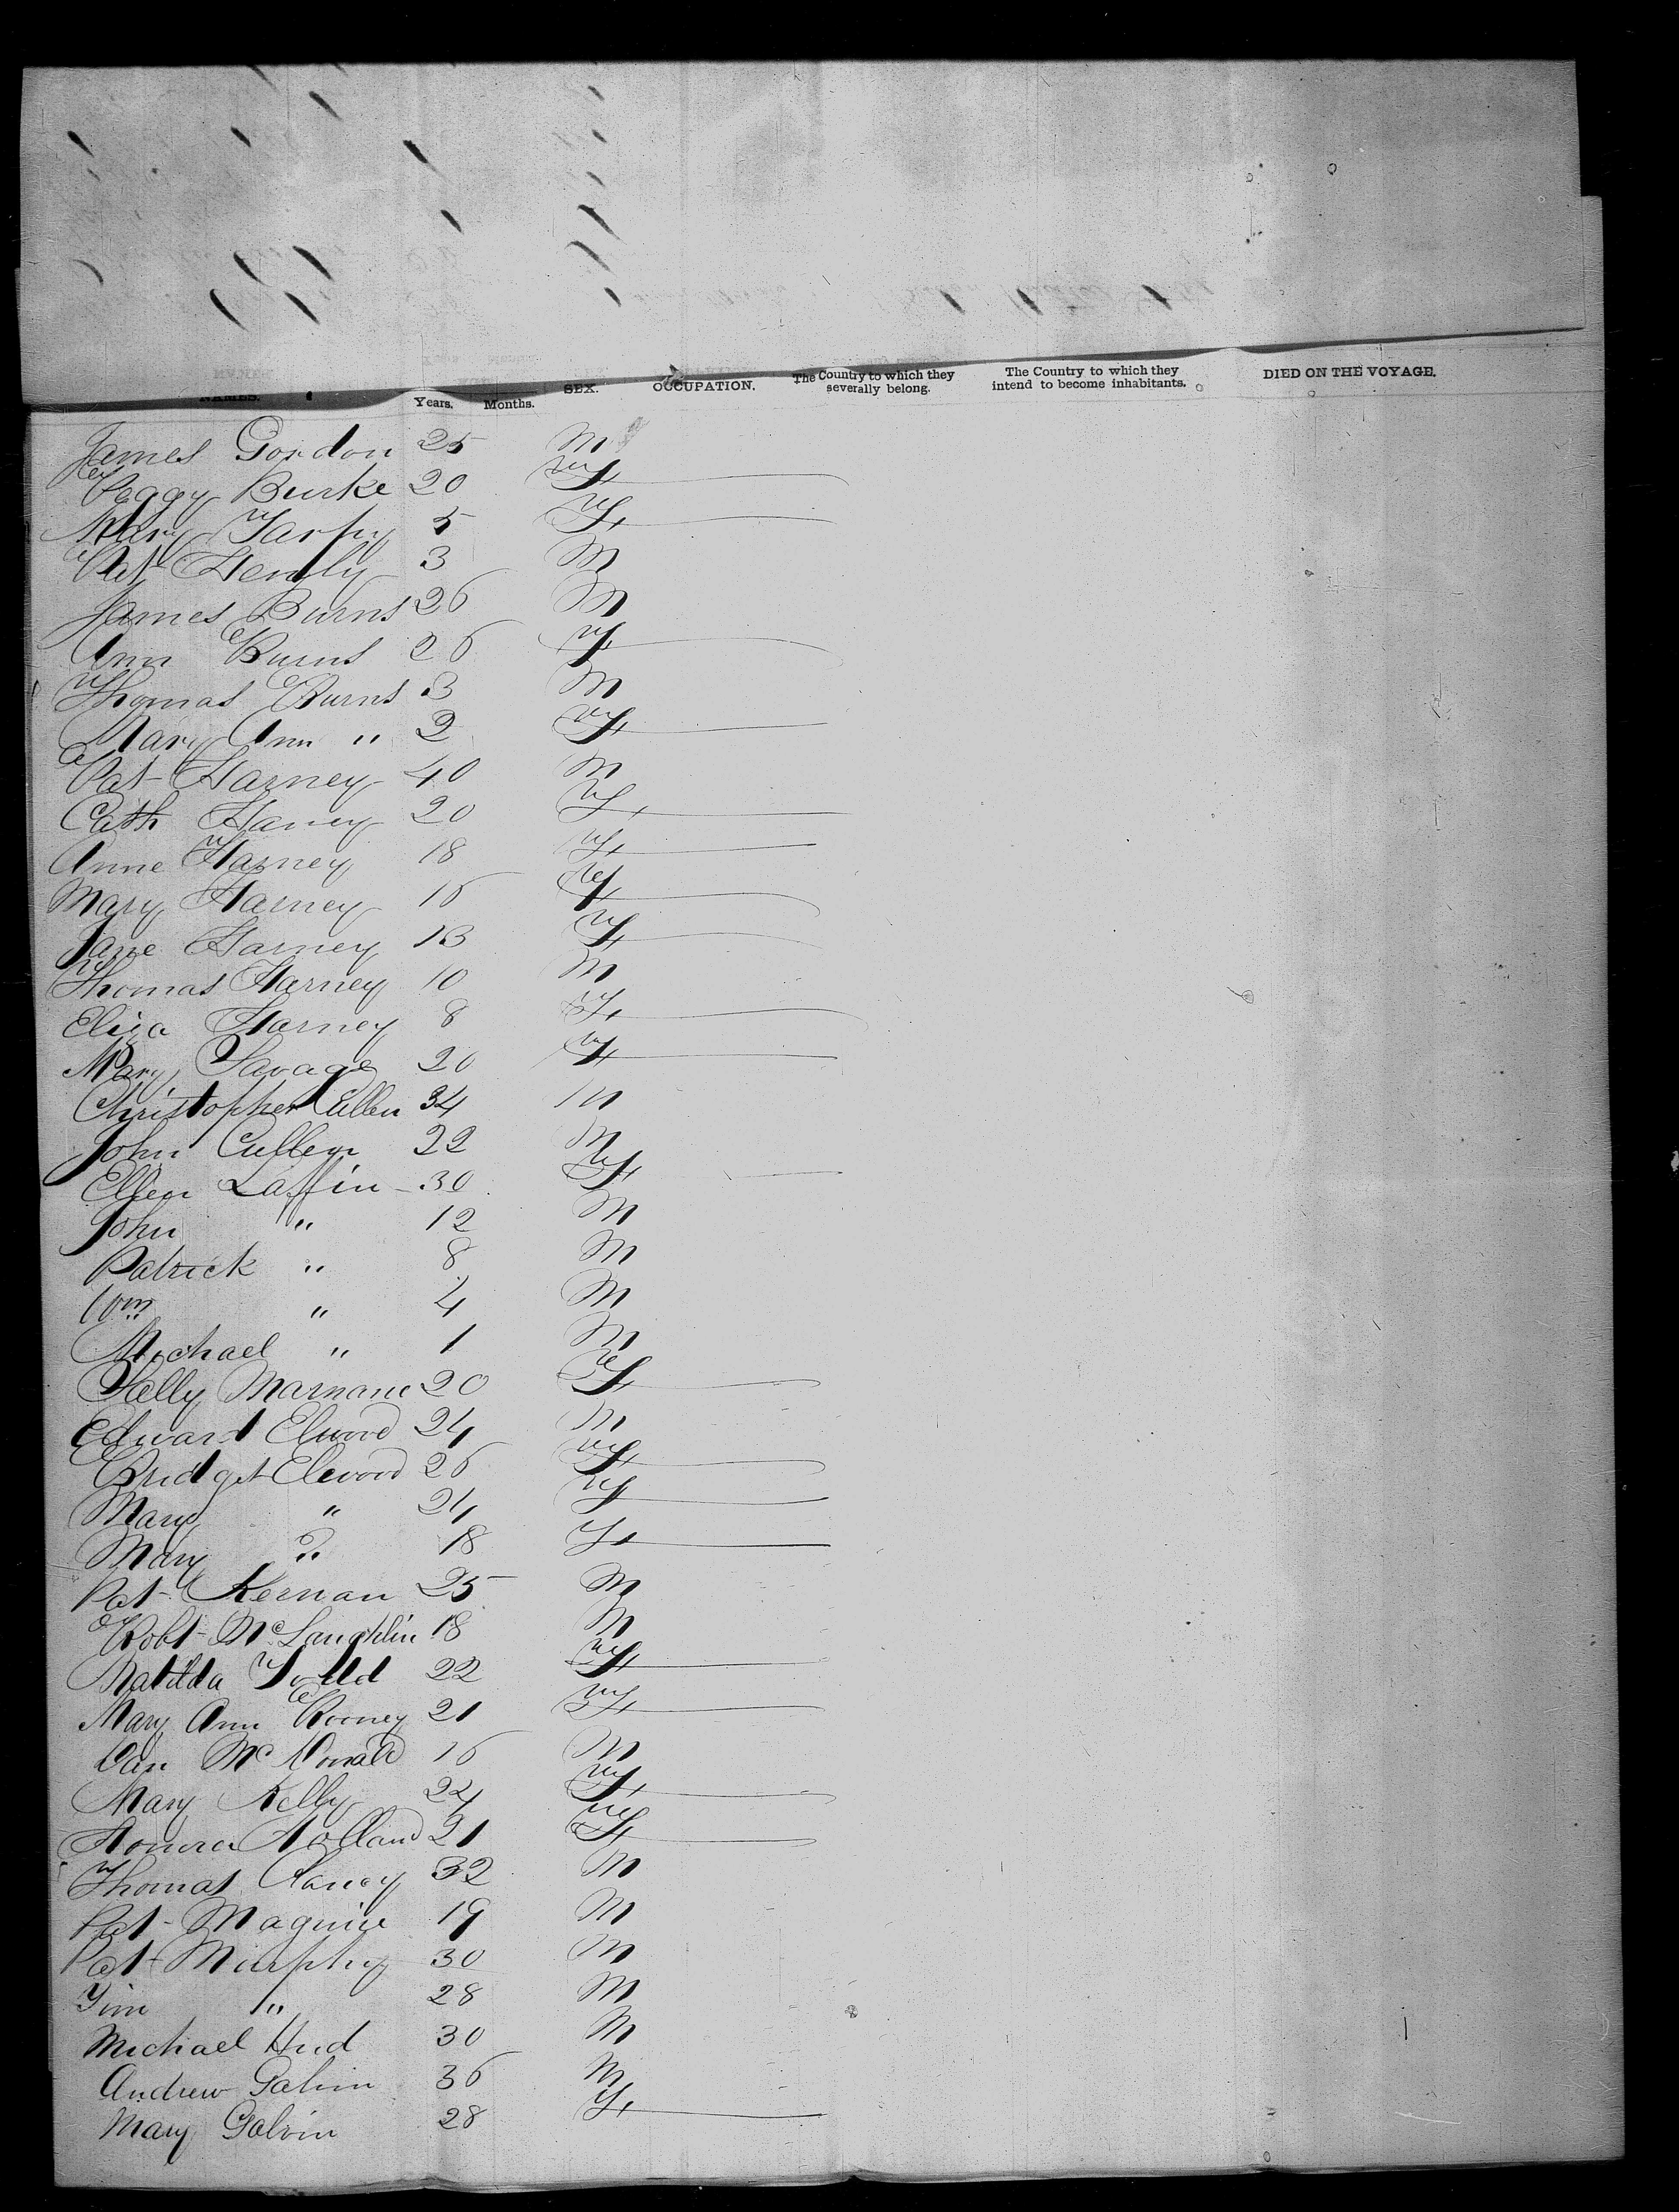 NAMES. Years. Months. SEX. OCCUPATION. The Country to which they severally belong. The Country to which they intend to become inhabitants. DIED ON THE VOYAGE.
James Gordon 25 M
Peggy Burke 20 F
Mary Tarpy 5 F
Pat Henly 3 M
James Burns 26 M
Ann Burns 26 F
Thomas Burns 3 M
Mary Ann " 2 F
Pat Harney 40 M
Cath Harney 20 F
Anne Harney 18 F
Mary Harney 16 F
Jane Harney 13 F
Thomas Harney 10 M
Eliza Harney 8 F
Mary Savage 20 F
Christopher Cullen 34 M
John Cullen 22 M
Ellen Laffin 30 F
John " 12 M
Patrick " 8 M
Wm " 4 M
Michael " 1 M
Sally Marnane 20 F
Edward Elwood 24 M
Bridget Elwood 26 F
Mary " 24 F
Mary " 18 F
Pat Kernan 25 M
Robt McLaughlin 18 M
Matilda Todd 22 F
Mary Ann Rooney 21 F
Dan McDonald 16 M
Mary Kelly 24 F
Honora Holland 21 F
Thomas Clancy 32 M
Pat Maguire 19 M
Pat Murphy 30 M
Tim " 28 M
Michael 30 M
Andrew Galvin 36 M
Mary Galvin 28 F